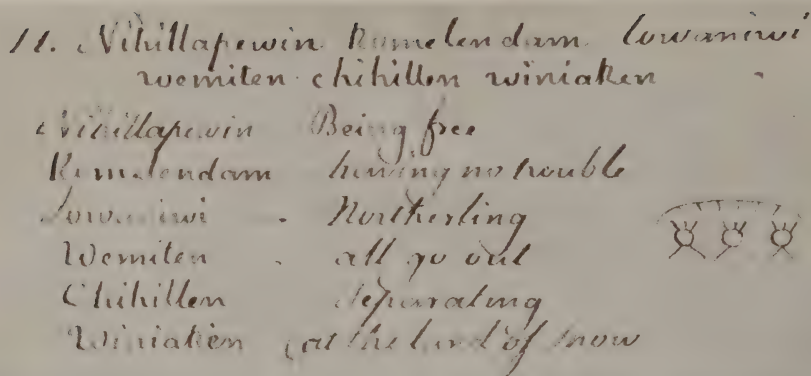 11. Nihillapewin Komelendam lowaniwi
wemiten chihillen winiaken
Nihillapewin Being free
Komelendam having no trouble
Lowaniwi . Northerling
Wemiten . all go out
Chihillen separating
Winiaken (at the land of snow